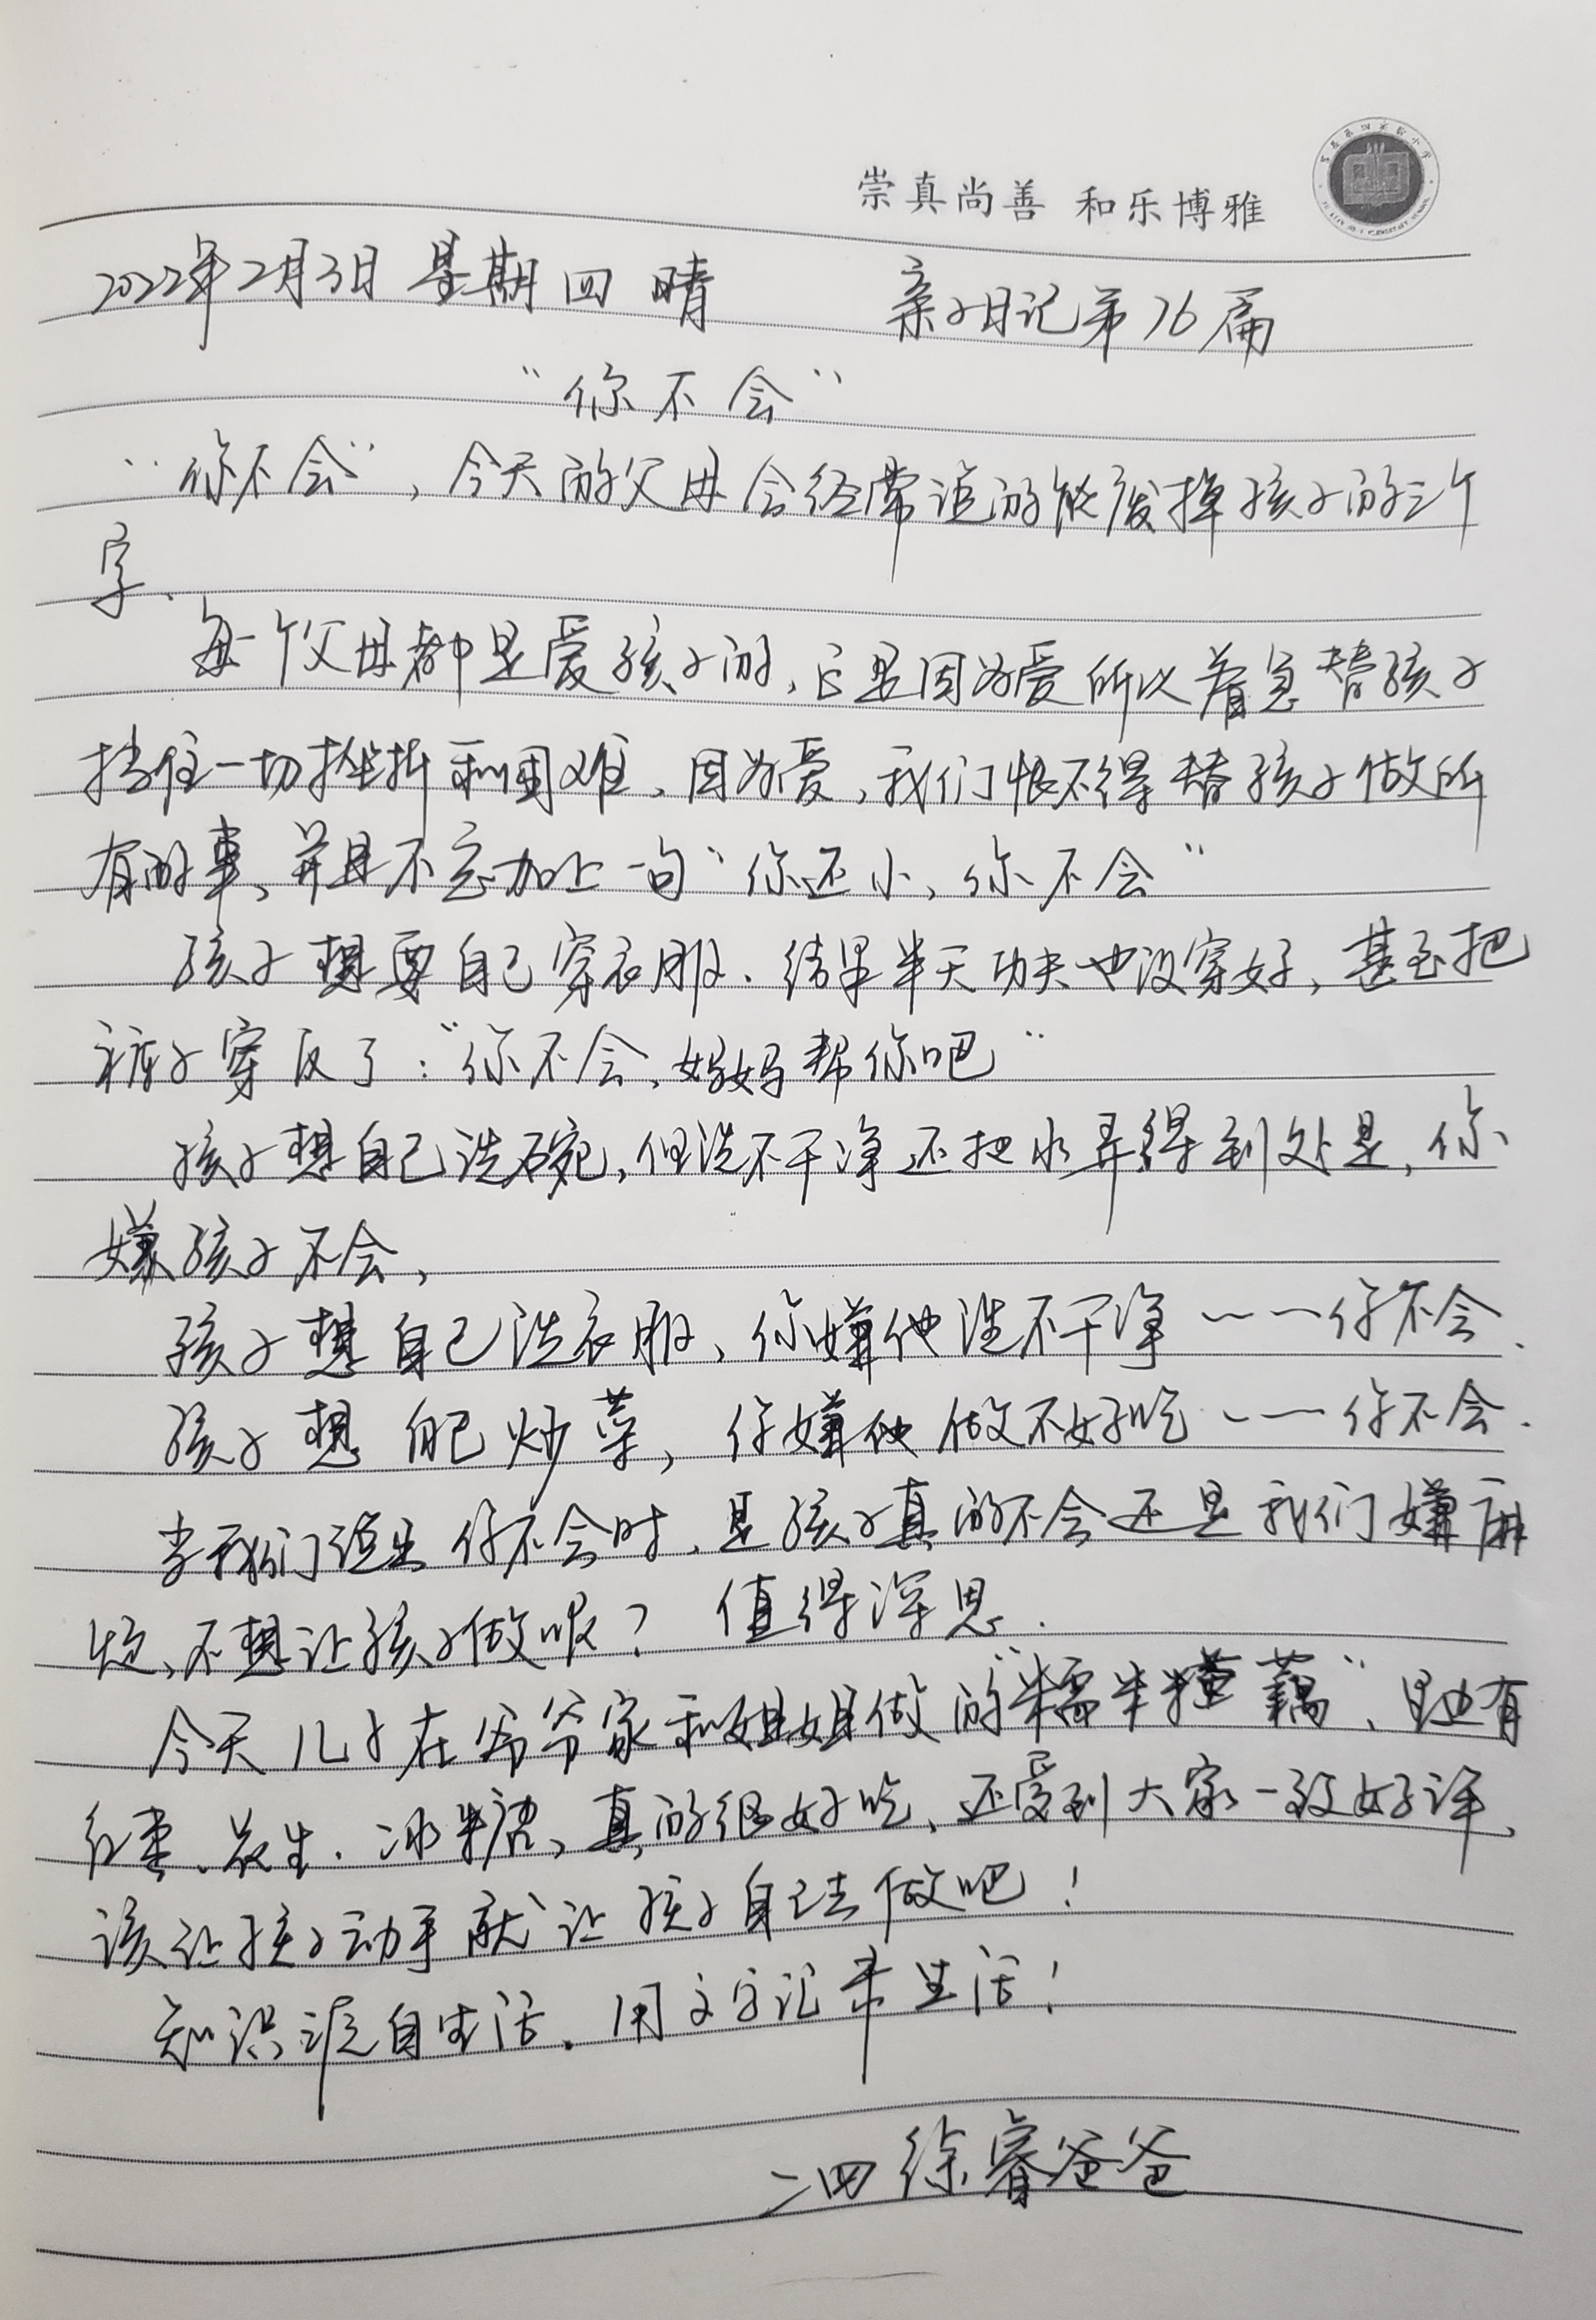 崇真尚善 和乐博雅
2022年2月3日 星期四 晴 亲子日记第76篇
“你不会”
“你不会”，今天的父母会经常说的能废掉孩子的三个
字.
每个父母都是爱孩子的，它是因为爱所以着急替孩子
挡住一切挫折和困难、因为爱，我们恨不得替孩子做所
有的事、并且不忘加上一句“你还小、你不会”
孩子想要自己穿衣服.结果半天功夫也没穿好，甚至把
裤子穿反了：“你不会、妈妈帮你吧”
孩子想自己洗碗，但洗不干净还把水弄得到处是，你
嫌孩子不会，
孩子想自己洗衣服、你嫌他洗不干净——你不会.
孩子想自己炒菜，你嫌他做不好吃——你不会.
当我们说出你不会时、是孩子真的不会还是我们嫌麻
烦、不想让孩子做呢？值得深思.
今天儿子在爷爷家和姐姐做的“糯米糯藕”、里边有
红枣、花生.冰糖、真的很好吃、还受到大家一致好评、
该让孩子动手就让孩子自己去做吧！
知识源自生活.用文字记录生活！
二四 徐睿爸爸